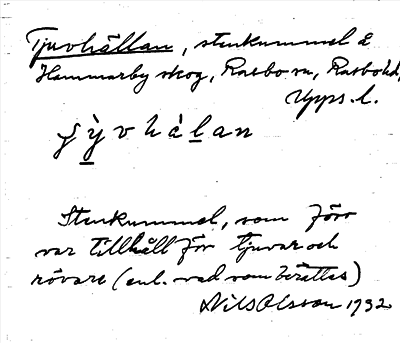 Tjuvhällan, stenkummel Ö
Hammarby skog, Rasbo sn, Rasbo hd,
Upps. l.
ʃỳvhàlan
Stenkummel, som förr
var tillhåll för tjuvar och
rövare (enl. vad som berättas)
Nils Olsson 1932